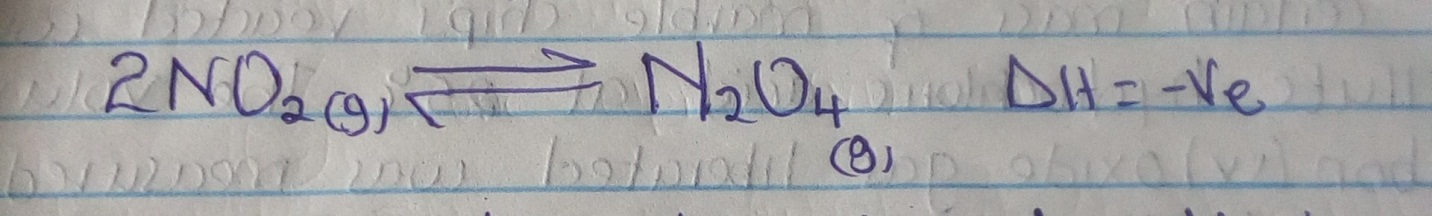 2NO₂(g) ⇌ N₂O₄(g) ΔH = -Ve